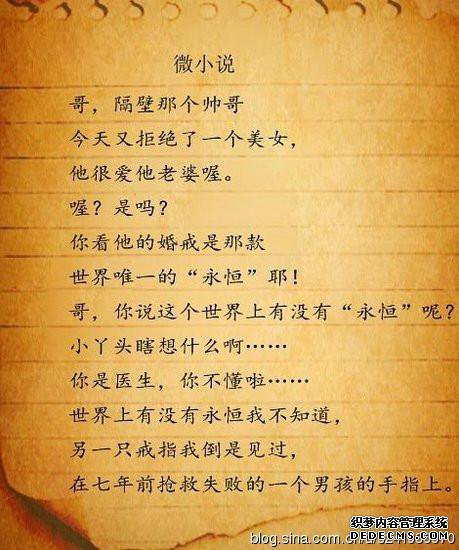 微小说
哥，隔壁那个帅哥
今天又拒绝了一个美女，
他很爱他老婆喔。
喔？是吗？
你看他的婚戒是那款
世界唯一的“永恒”耶！
哥，你说这个世界上有没有“永恒”呢？
小丫头瞎想什么啊……
你是医生，你不懂啦……
世界上有没有永恒我不知道，
另一只戒指我倒是见过，
在七年前抢救失败的一个男孩的手指上。
织梦内容管理系统
DEDECMS.COM